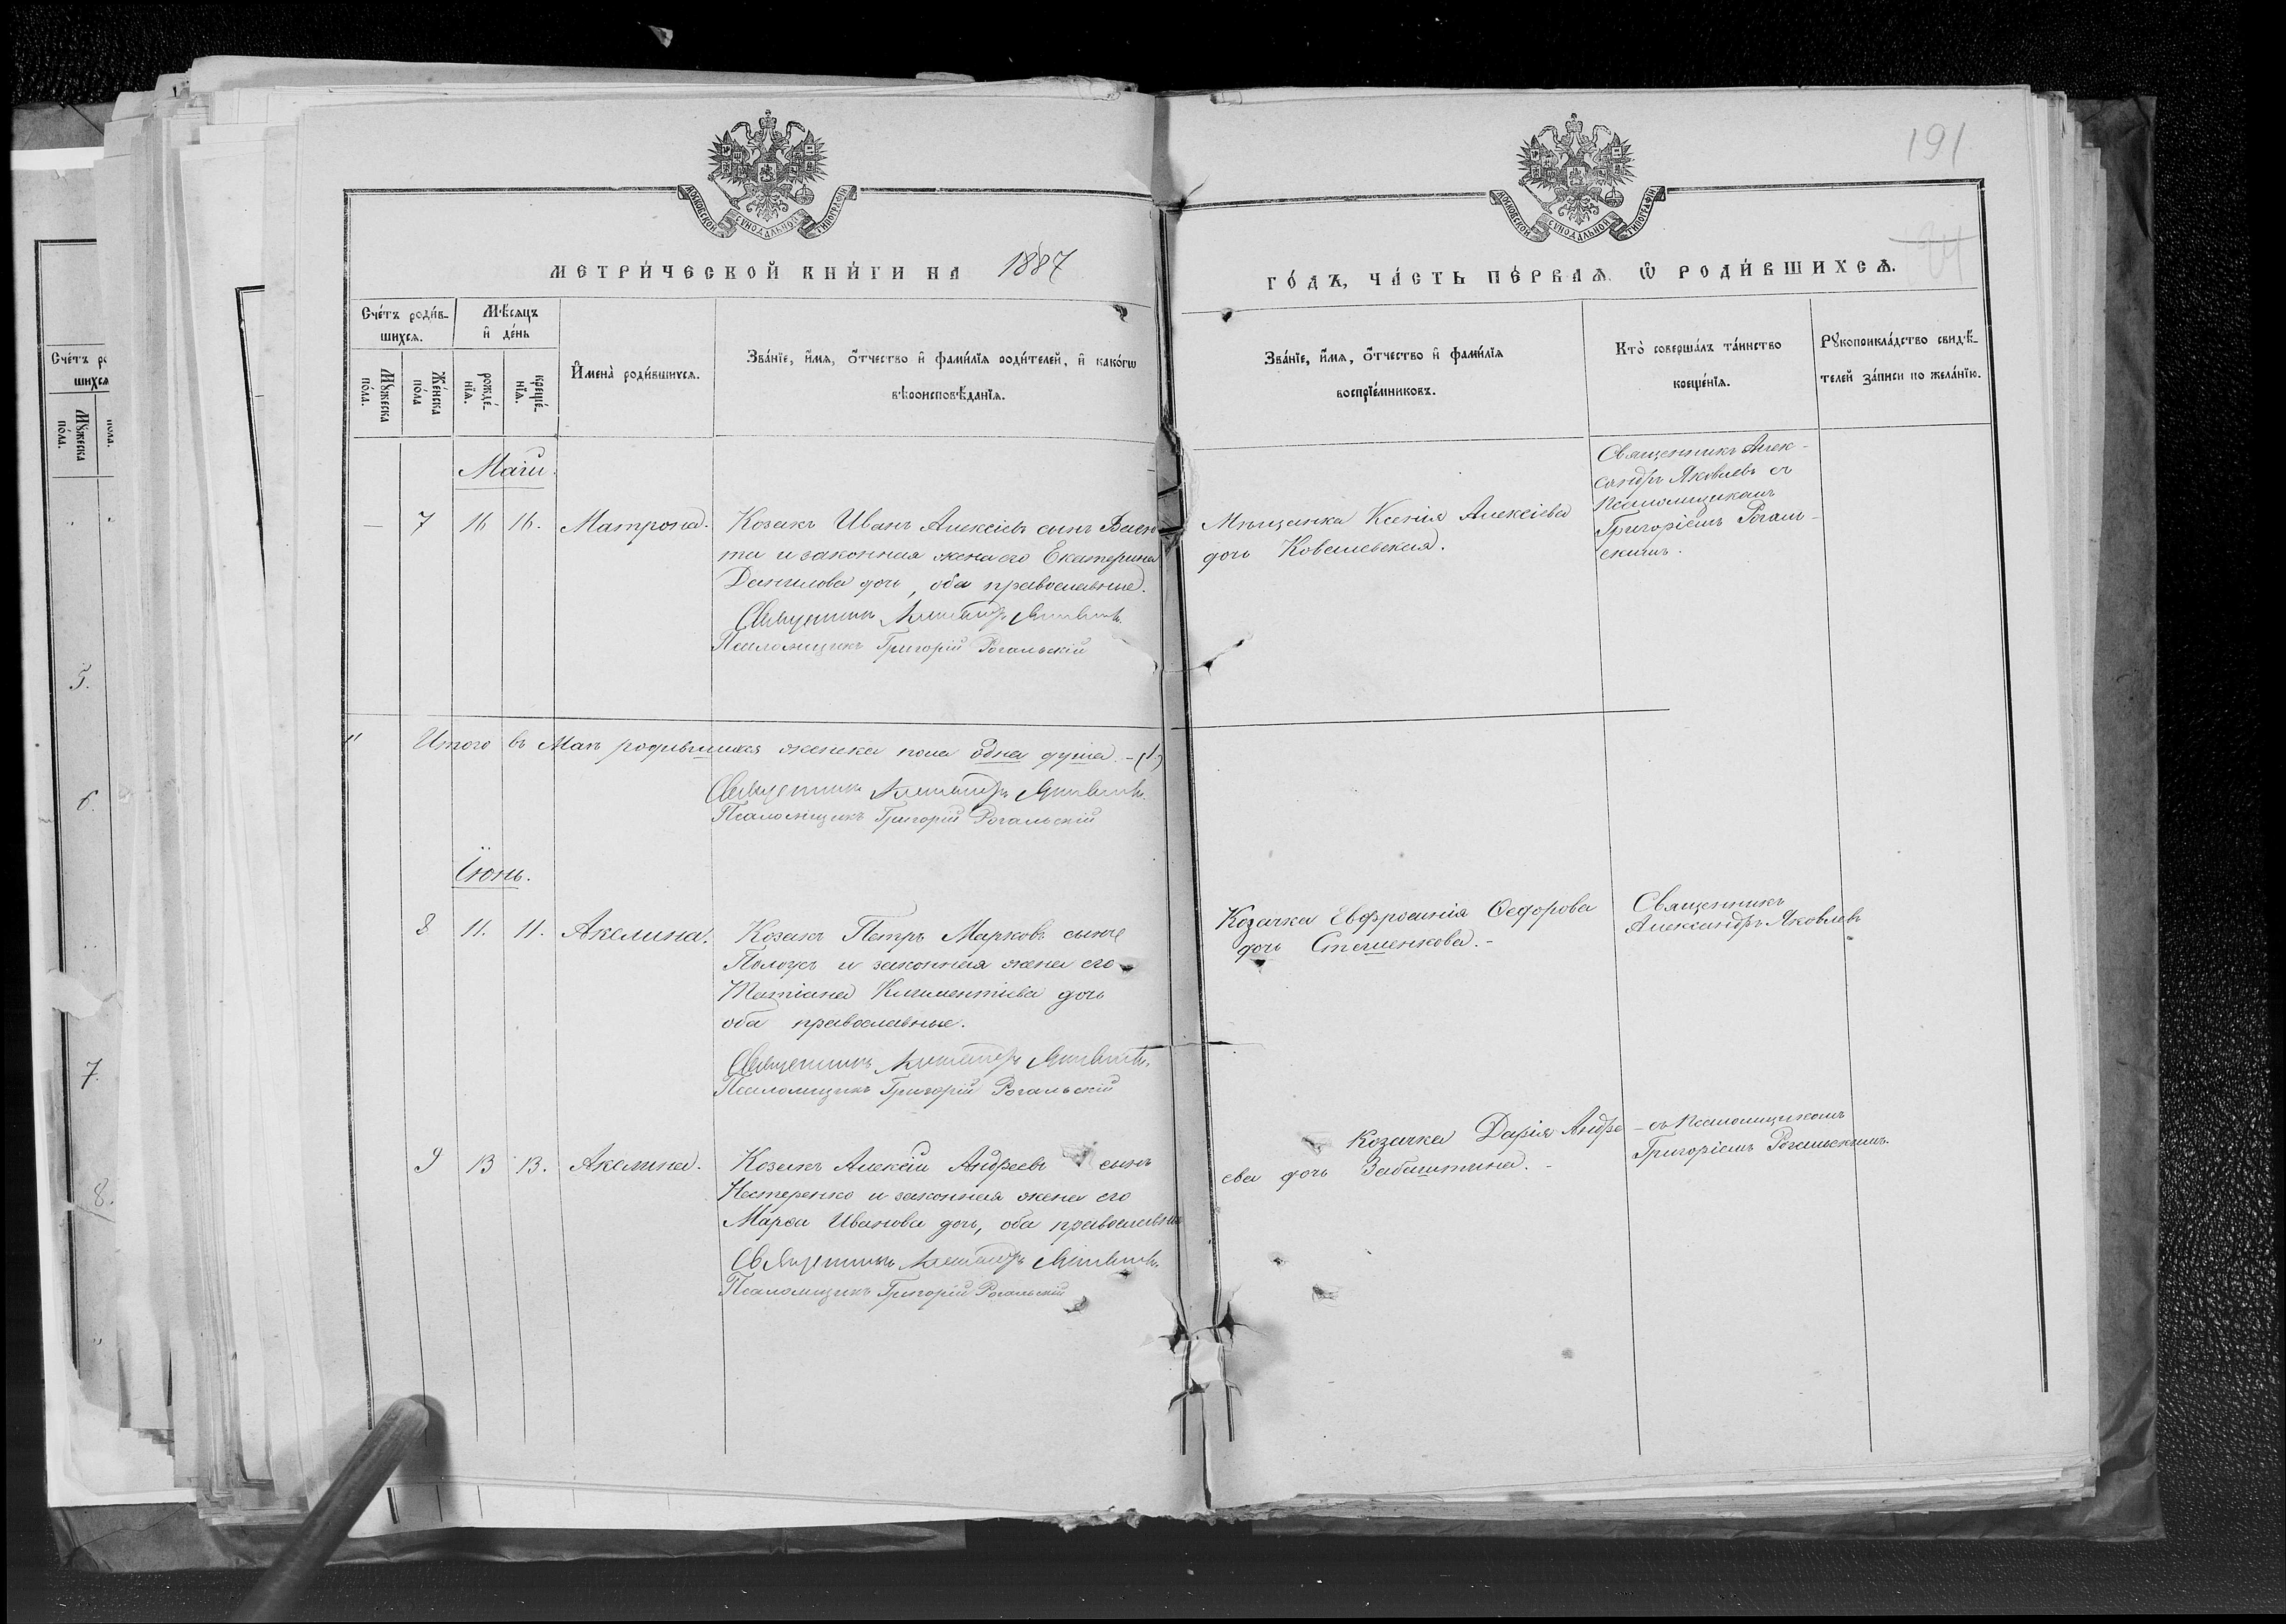 191
МОСКОВСКОЙ СѴНОДАЛЬНОЙ ТИПОГРАФІИ
МОСКОВСКОЙ СѴНОДАЛЬНОЙ ТИПОГРАФІИ
МЕТРИ́ЧЕСКОЙ КНИ́ГИ НА 1887
ГО́ДЪ, ЧА́СТЬ ПЕ́РВАЯ Ѡ РОДИ́ВШИХСЯ.
Сче́тъ роди́в-
шихся.
Мѣ́сяцъ
и де́нь
Мꙋ́жеска
по́ла.
Же́нска
по́ла
рожде́-
нїя.
креще́-
нїя.
Имена̀ роди́вшихся.
Зва́нїе, и́мя, о́тчество и фами́лїя роди́телей, и како́гѡ
вѣроисповѣ́данїя.
Зва́нїе, и́мя, о́тчество и фами́лїя
воспрїе́мниковъ.
Кто̀ соверша́лъ та́инство
креще́нїя.
Рꙋкоприкла́дство свидѣ́-
телей за́писи по жела́нїю.
Сче́тъ
шихся
Мꙋ́жеска
по́ла.
по́ла.
5.
6.
7.
8.
Май.
7 16 16. Матрона. Козакъ Иванъ Алексіевъ сынъ
та и законная жена его Екатерина
Данилова дочь, оба православные.
Священникъ Александръ Яковлевъ.
Псаломщикъ Григорій Рогальскій
Мѣщанка Ксенія Алексіева
дочь Ковалевская.
Священникъ Алек-
сандръ Яковлевъ съ
Псаломщикомъ
Григоріемъ Рогаль-
скимъ.
Итого въ Маѣ родившихся женска пола одна душа. - (1)
Священникъ Александръ Яковлевъ.
Псаломщикъ Григорій Рогальскій
Іюнь.
8 11. 11. Акелина. Козакъ Петръ Марковъ сынъ
и законная жена его
Татіана Климентіева дочь
оба православные.
Священникъ Александръ Яковлевъ.
Псаломщикъ Григорій Рогальскій
Козачка Евфросинія Ѳедорова
дочь Стешенкова. -
Священникъ
Александръ Яковлевъ
9 13 13. Акелина. Козакъ Алексій Андреевъ сынъ
Нестеренко и законная жена его
Марѳа Иванова дочь, оба православные
Священникъ Александръ Яковлевъ.
Псаломщикъ Григорій Рогальскій
Козачка Дарія Андре
ева дочь Забаштина. -
- съ Псаломщикомъ
Григоріемъ Рогальскимъ.